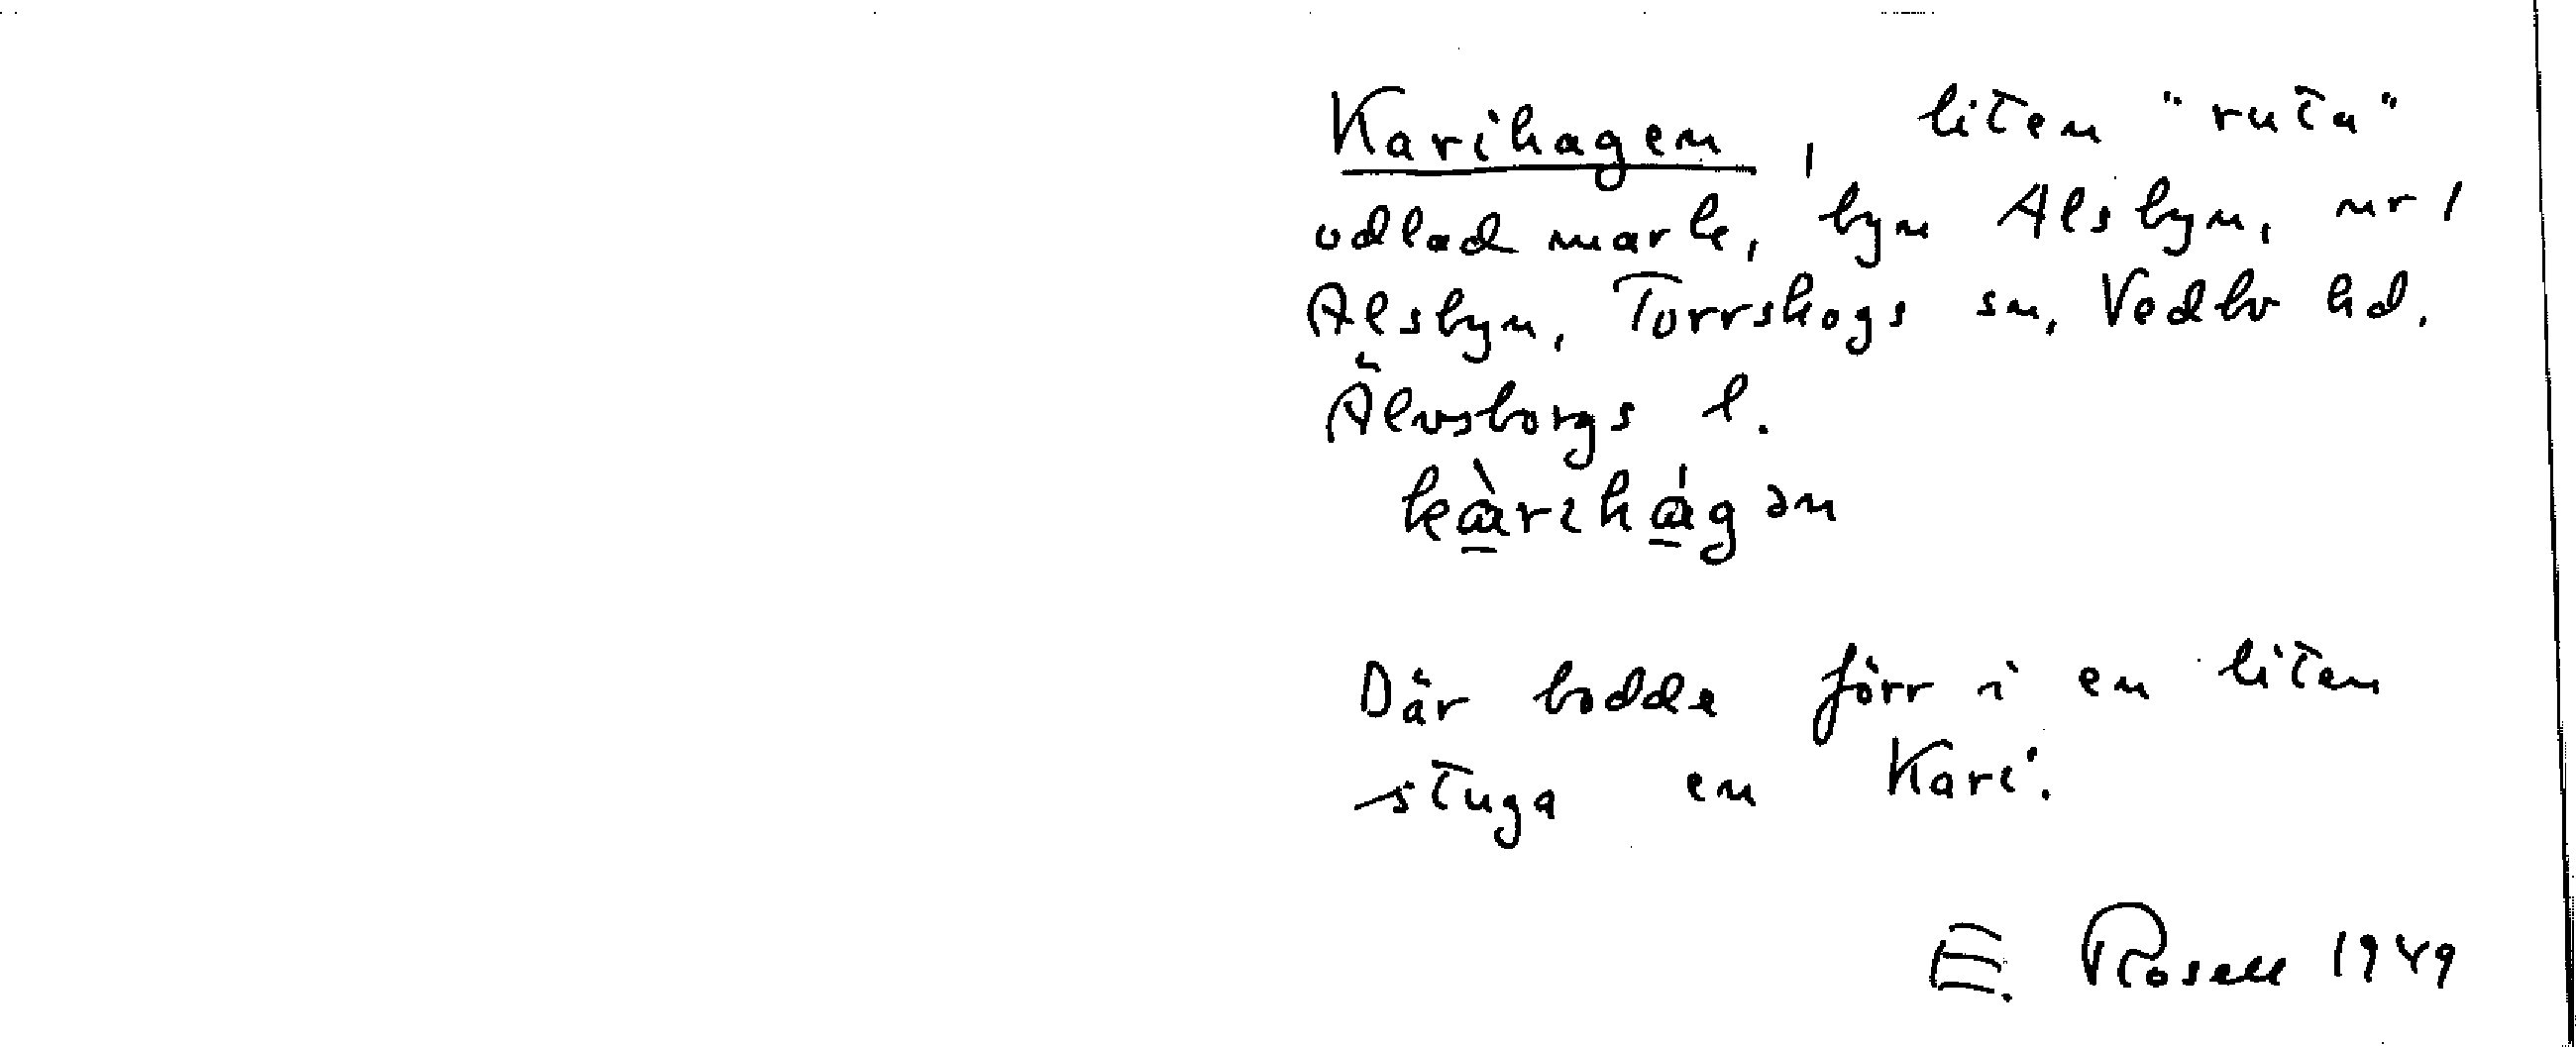 Karihagen, liten "ruta"
odlad mark, byn Alsbyn, nr 1
Alsbyn, Torrskogs sn, Vedbo hd.
Älvsborgs l.
kàrihágən
Där bodde förr i en liten
stuga en Kari.
E. Rosell 1949